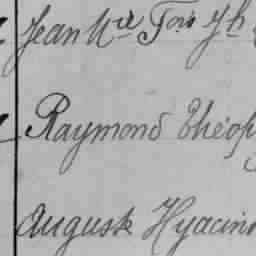 Jean Mie Fois Jh
Raymond Théop
Auguste Hyacin